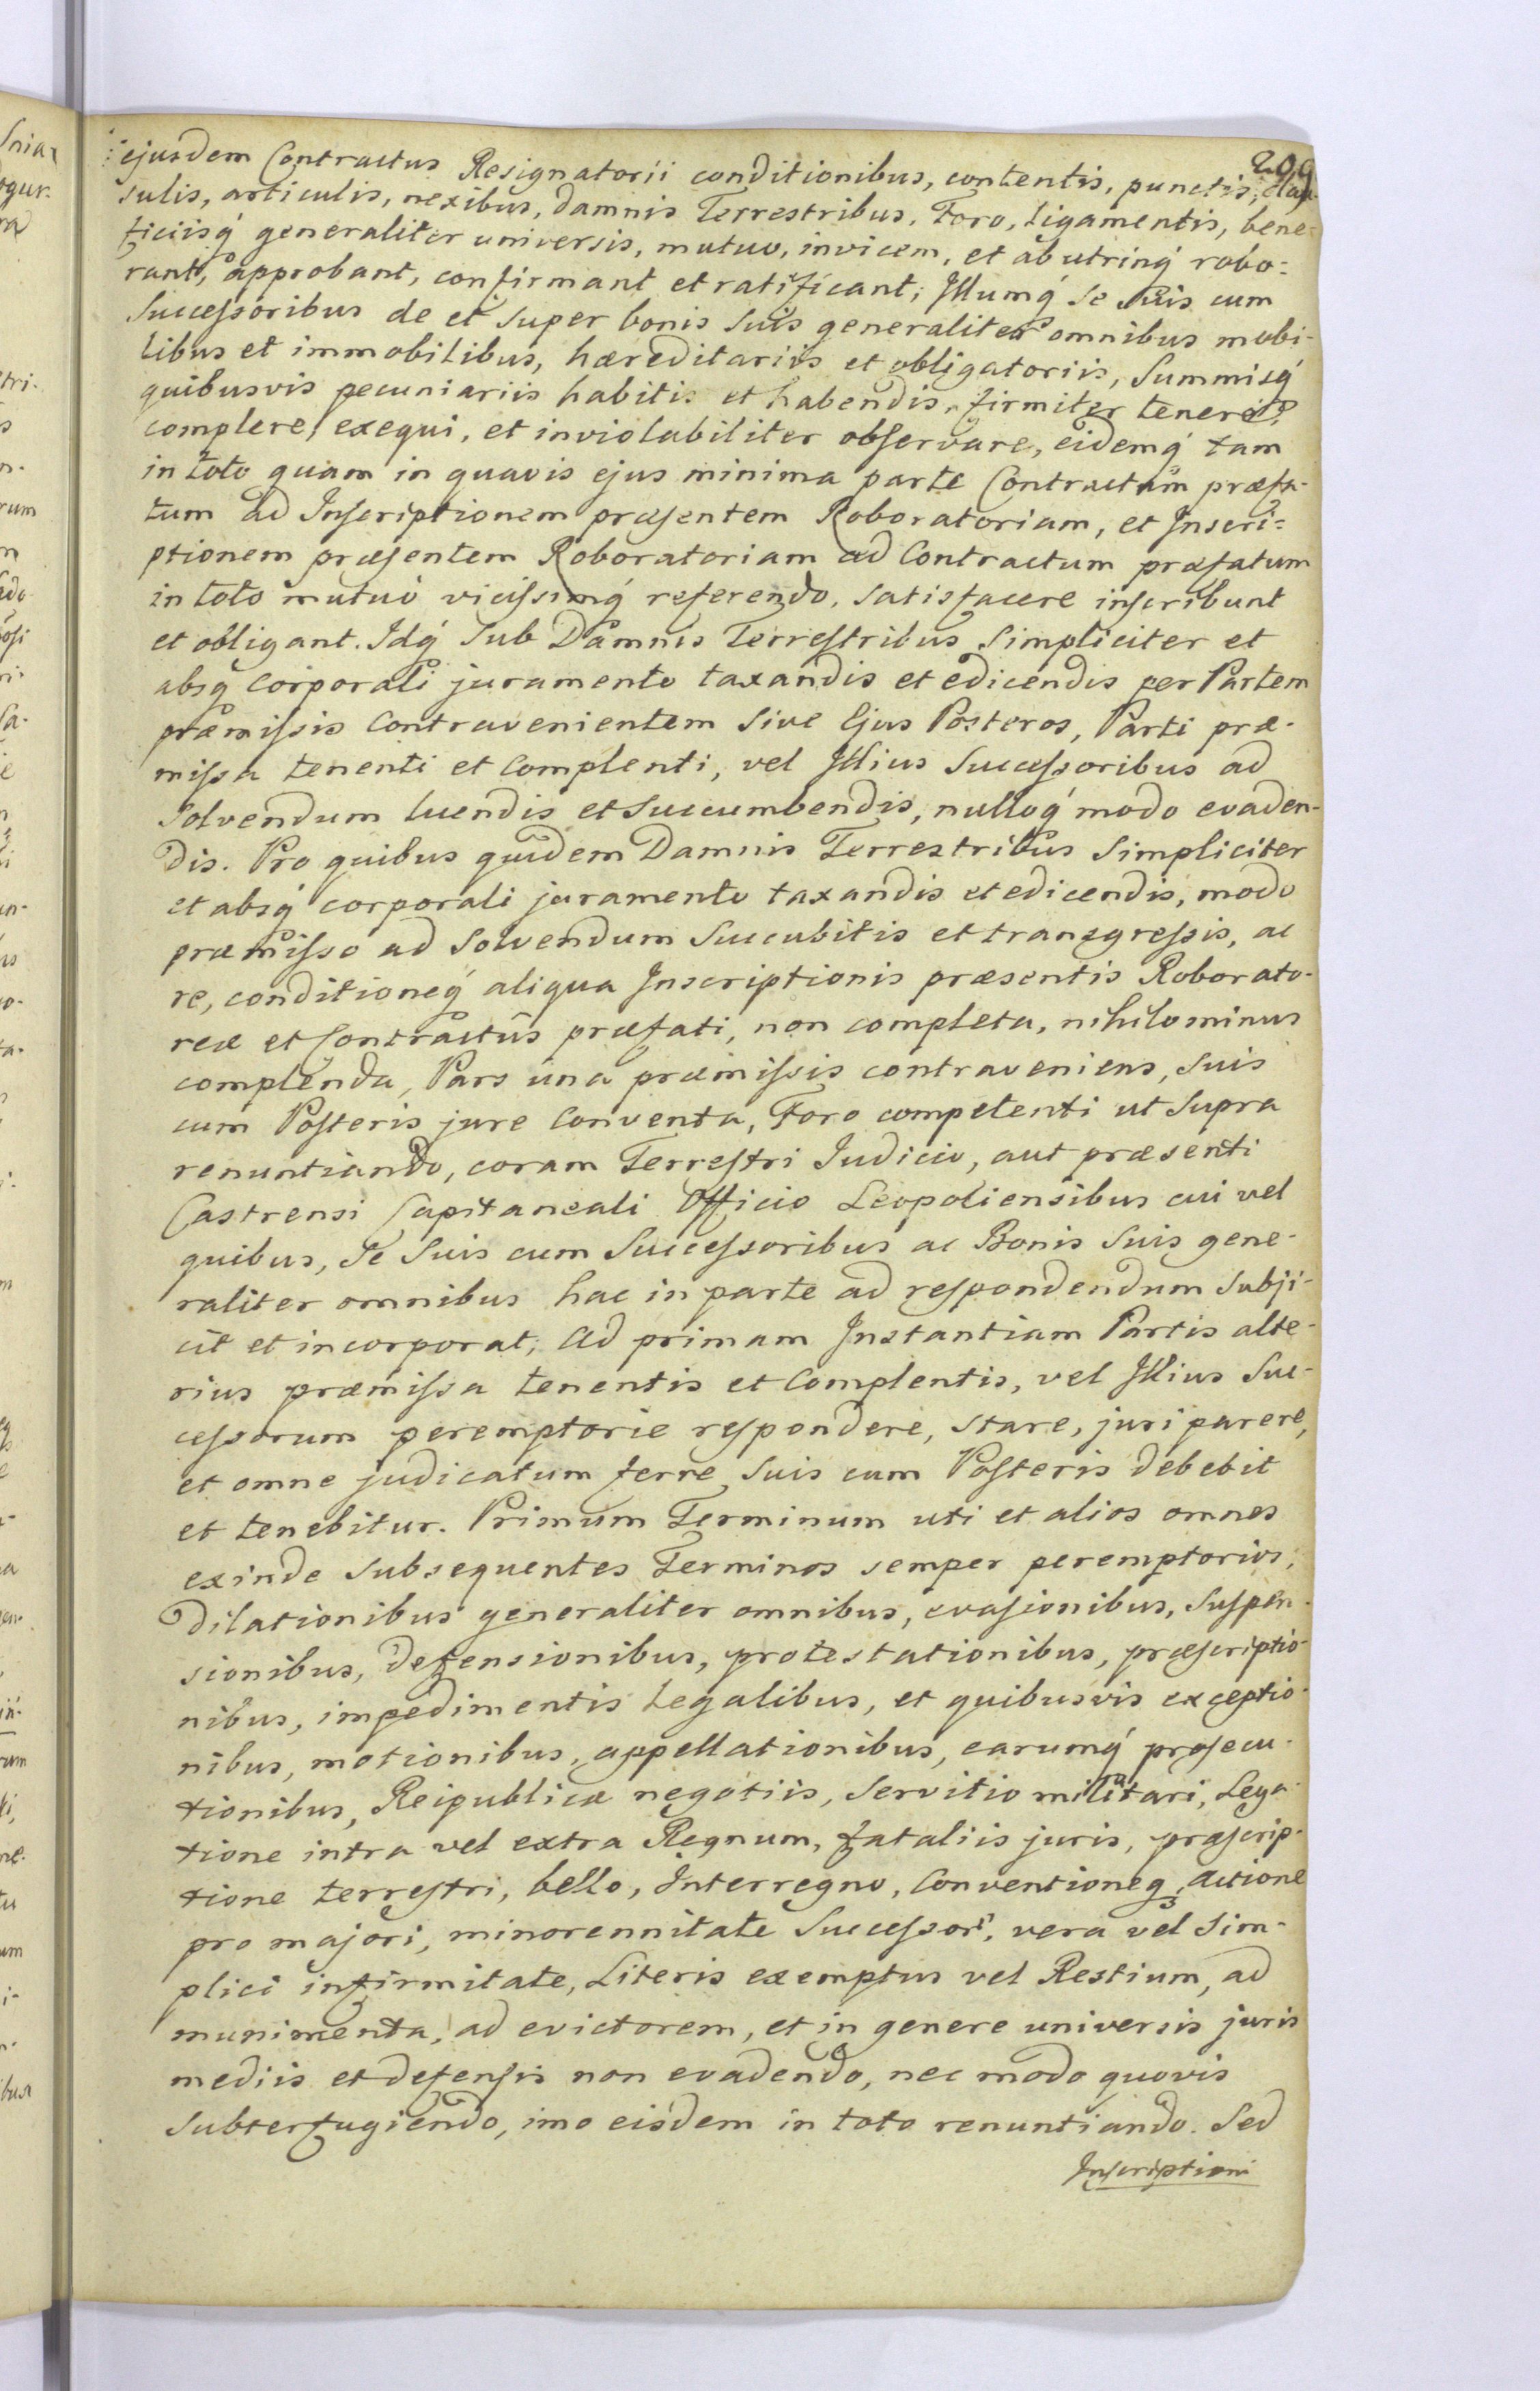 209
ejusdem Contractus Resignatorii conditionibus, contentis, punctis, clau-
sulis, articulis, nexibus, damnis Terrestribus, Foro, ligamentis, bene-
ficiisq́ generaliter universis, mutuo, invicem, et ab utrinq́ robo=
rant, approbant, confirmant et ratificant; Illumq́ se suis cum
Successoribus de et super bonis suis generaliter omnibus mobi-
libus et immobilibus, hæreditariis et obligatoriis, Summisq́
quibusvis pecuniariis habitis et habendis, firmiter tenere,
complere, exequi, et inviolabiliter observare, eidemq́ tam
in toto quam in quavis ejus minima parte Contractum præfa-
tum ad Inscriptionem præsentem Roboratoriam, et Inscri=
ptionem præsentem Roboratoriam ad Contractum præfatum
in toto mutuó vicissimq́ referendo, satisfacere inscribunt
et obligant. Idq́ Sub Damnis Terrestribus Simpliciter et
absq́ corporali juramento taxandis et edicendis per Partem
præmissis Contravenientem Sive Ejus Posteros, Parti præ-
missa tenenti et Complenti, vel Illius Successoribus ad
Solvendum luendis et Succumbendis, nulloq́ modo evaden-
dis. Pro quibus quidem Damnis Terrestribus Simpliciter
et absq́ corporali juramento taxandis et edicendis, modo
præmisso ad Solvendum Succubitis et transgressis, ac
re, conditioneq́ aliqua Inscriptionis præsentis Roborato-
reæ et Contractûs præfati, non completa, nihilominus
complenda, Pars una præmissis contraveniens, suis
cum Posteris jure Conventa, Foro competenti ut Supra
renuntiando, coram Terrestri Judicio, aut præsenti
Castrensi Capitaneali Officio Leopoliensibus cui vel
quibus, Se Suis cum Successoribus ac Bonis Suis gene-
raliter omnibus hac in parte ad respondendum Subji-
cit et incorporat; Ad primam Instantiam Partis alte-
rius præmissa tenentis et Complentis, vel Illius Suc-
cessorum peremptorie respondere, stare, juri parere,
et omne judicatum ferre Suis cum Posteris debebit
et tenebitur. Primum Terminum uti et alios omnes
exinde subsequentes Terminos semper peremptorios;
Dilationibus generaliter omnibus, evasionibus, Suspen-
sionibus, defensionibus, protestationibus, præscriptio-
nibus, impedimentis Legalibus, et quibusvis exceptio-
nibus, motionibus, appellationibus, earumq́ prosecu-
tionibus, Reipublicæ negotiis, Servitio militari, Lega-
tione intra vel extra Regnum, fataliis juris, præscrip-
tione terrestri, bello, Interregno, Conventioneq, actione
pro majori, minorennitate Successor, vera vel Sim-
plici infirmitate, Literis exemptus vel Restium, ad
munimenta, ad evictorem, et in genere universis juris
mediis et defensis non evadendo, nec modo quovis
Subterfugiendo, imo eisdem in toto renuntiando. Sed
Inscriptioni